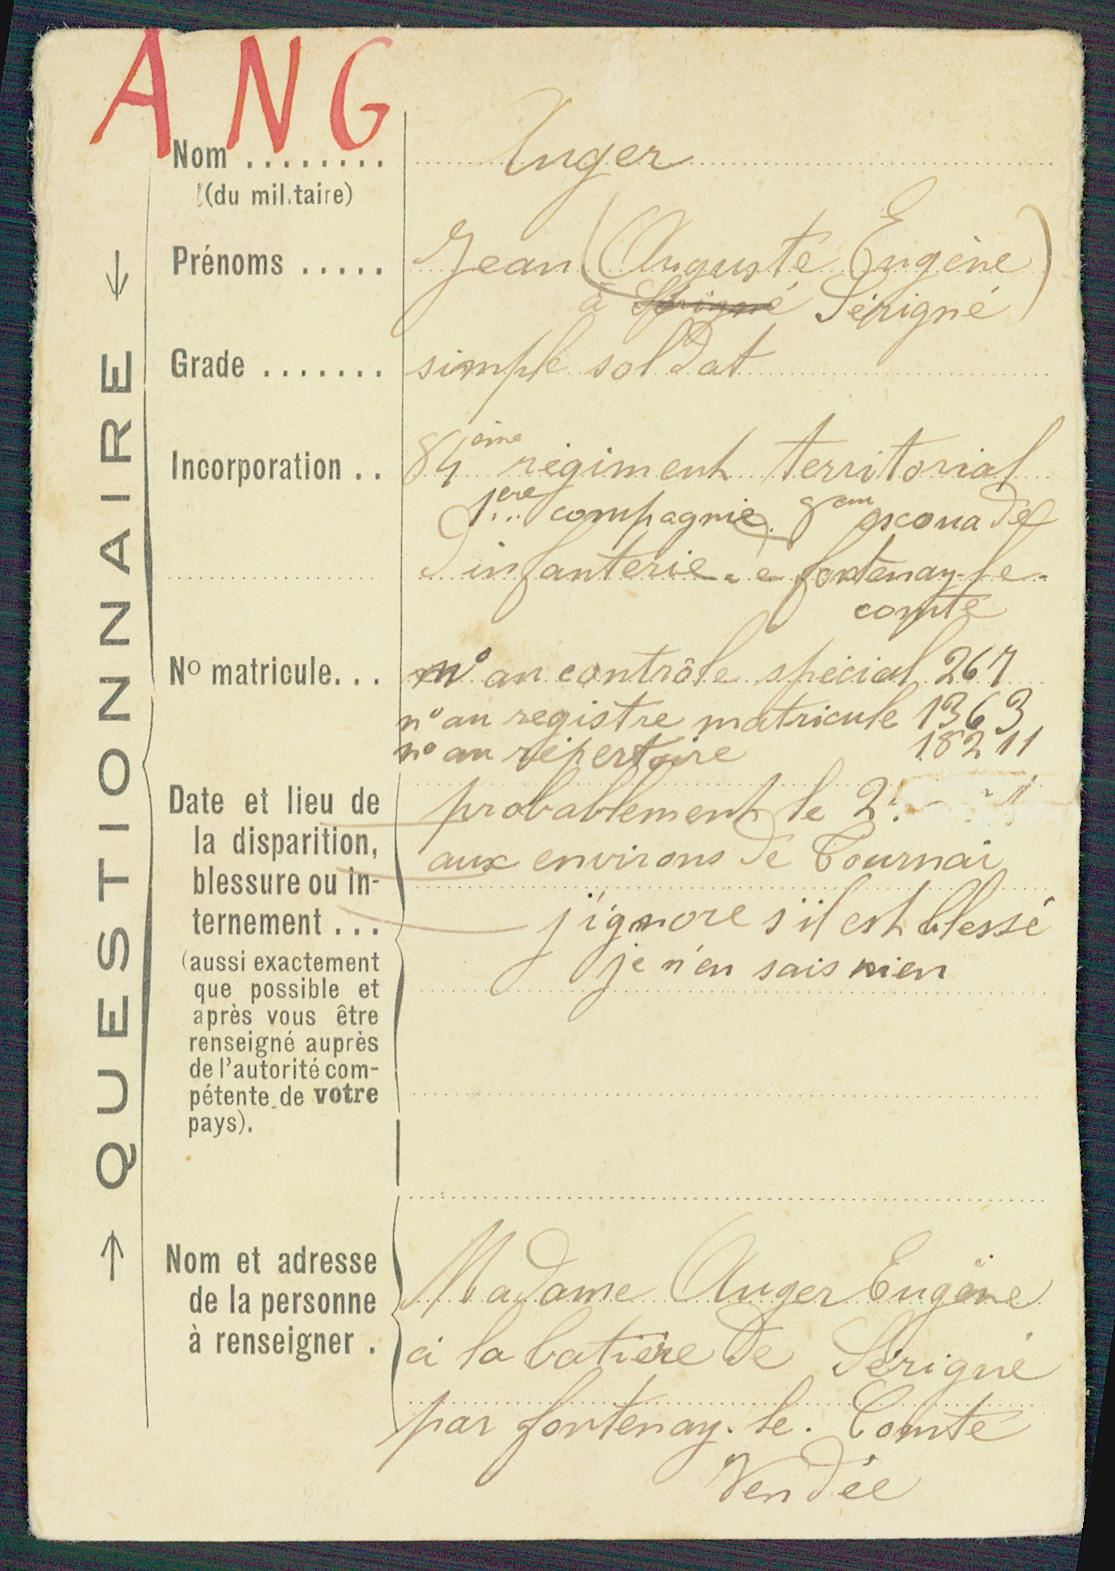 ANG
QUESTIONNAIRE
Nom ........ Auger
(du militaire)
Prénoms ..... Jean (Auguste Eugène)
à Sérigné Sérigné
Grade ....... simple soldat
Incorporation .. 84ème régiment territorial
1ere compagnie 8em escouade
d'infanterie fontenay-le-
comte
No matricule... no au contrôle spécial 267
no au registre matricule 1363
no au répertoire 18211
Date et lieu de la disparition, blessure ou internement ... probablement le 2
aux environs de Tournai
j'ignore s'il est blessé
je n'en sais rien
(aussi exactement
que possible et
après vous être
renseigné auprès
de l'autorité com-
pétente de votre
pays).
Nom et adresse
de la personne
à renseigner .
Madame Auger Eugène
à la batière de Sérigné
par fontenay. le. Comte
Vendée